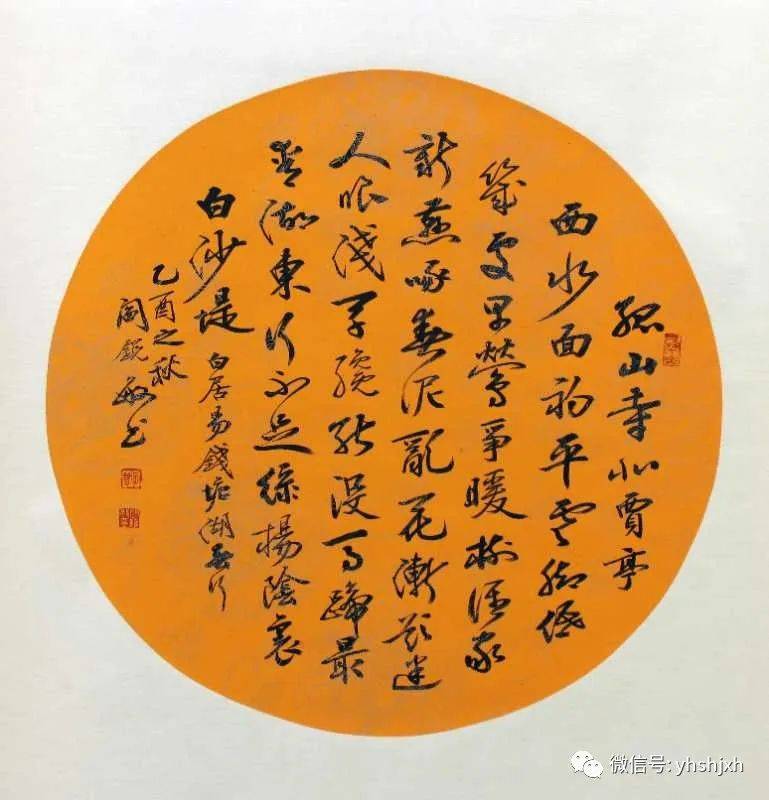 孤山寺北賈亭
西水面初平雲腳低
幾處早鶯爭暖樹誰家
新燕啄春泥亂花漸欲迷
人眼淺草纔能沒馬蹄最
愛湖東行不足綠楊陰裏
白沙堤 白居易錢塘湖春行
乙酉之秋
閻銳敏书
微信号: yhshjxh